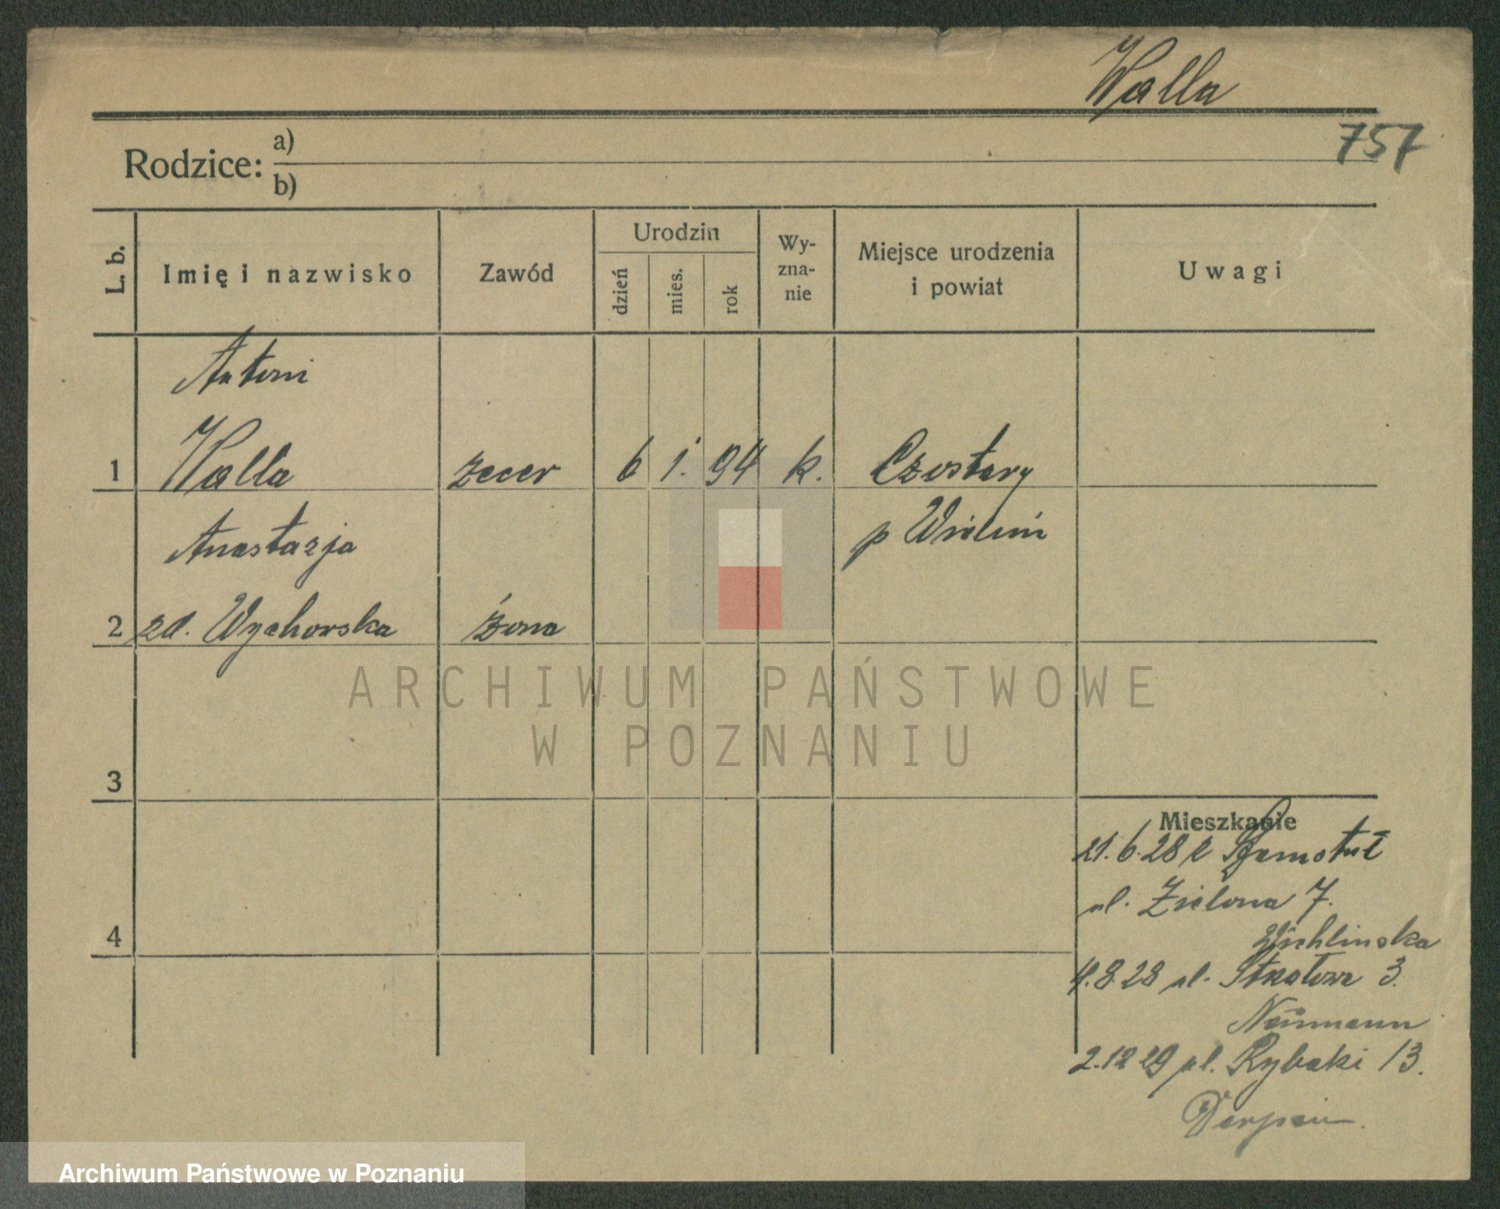 Walla
757
Rodzice: a)
b)
L. b.
Imię i nazwisko
Zawód
Urodzin
dzień
mies.
rok
Wy-
zna-
nie
Miejsce urodzenia
i powiat
Uwagi
Antoni
1 Walla zecer 6 1. 94 k. Czostary
p Wieluń
Anastazja
2 zd. Wychorska żona
3
4
Mieszkanie
21.6.28 z Szamotuł
ul. Zielona 7.
Wichlinska
4.8.28 ul. 3.
Neumann
2.12 29 ul. Rybaki 13.
ARCHIWUM PAŃSTWOWE
W POZNANIU
Archiwum Państwowe w Poznaniu